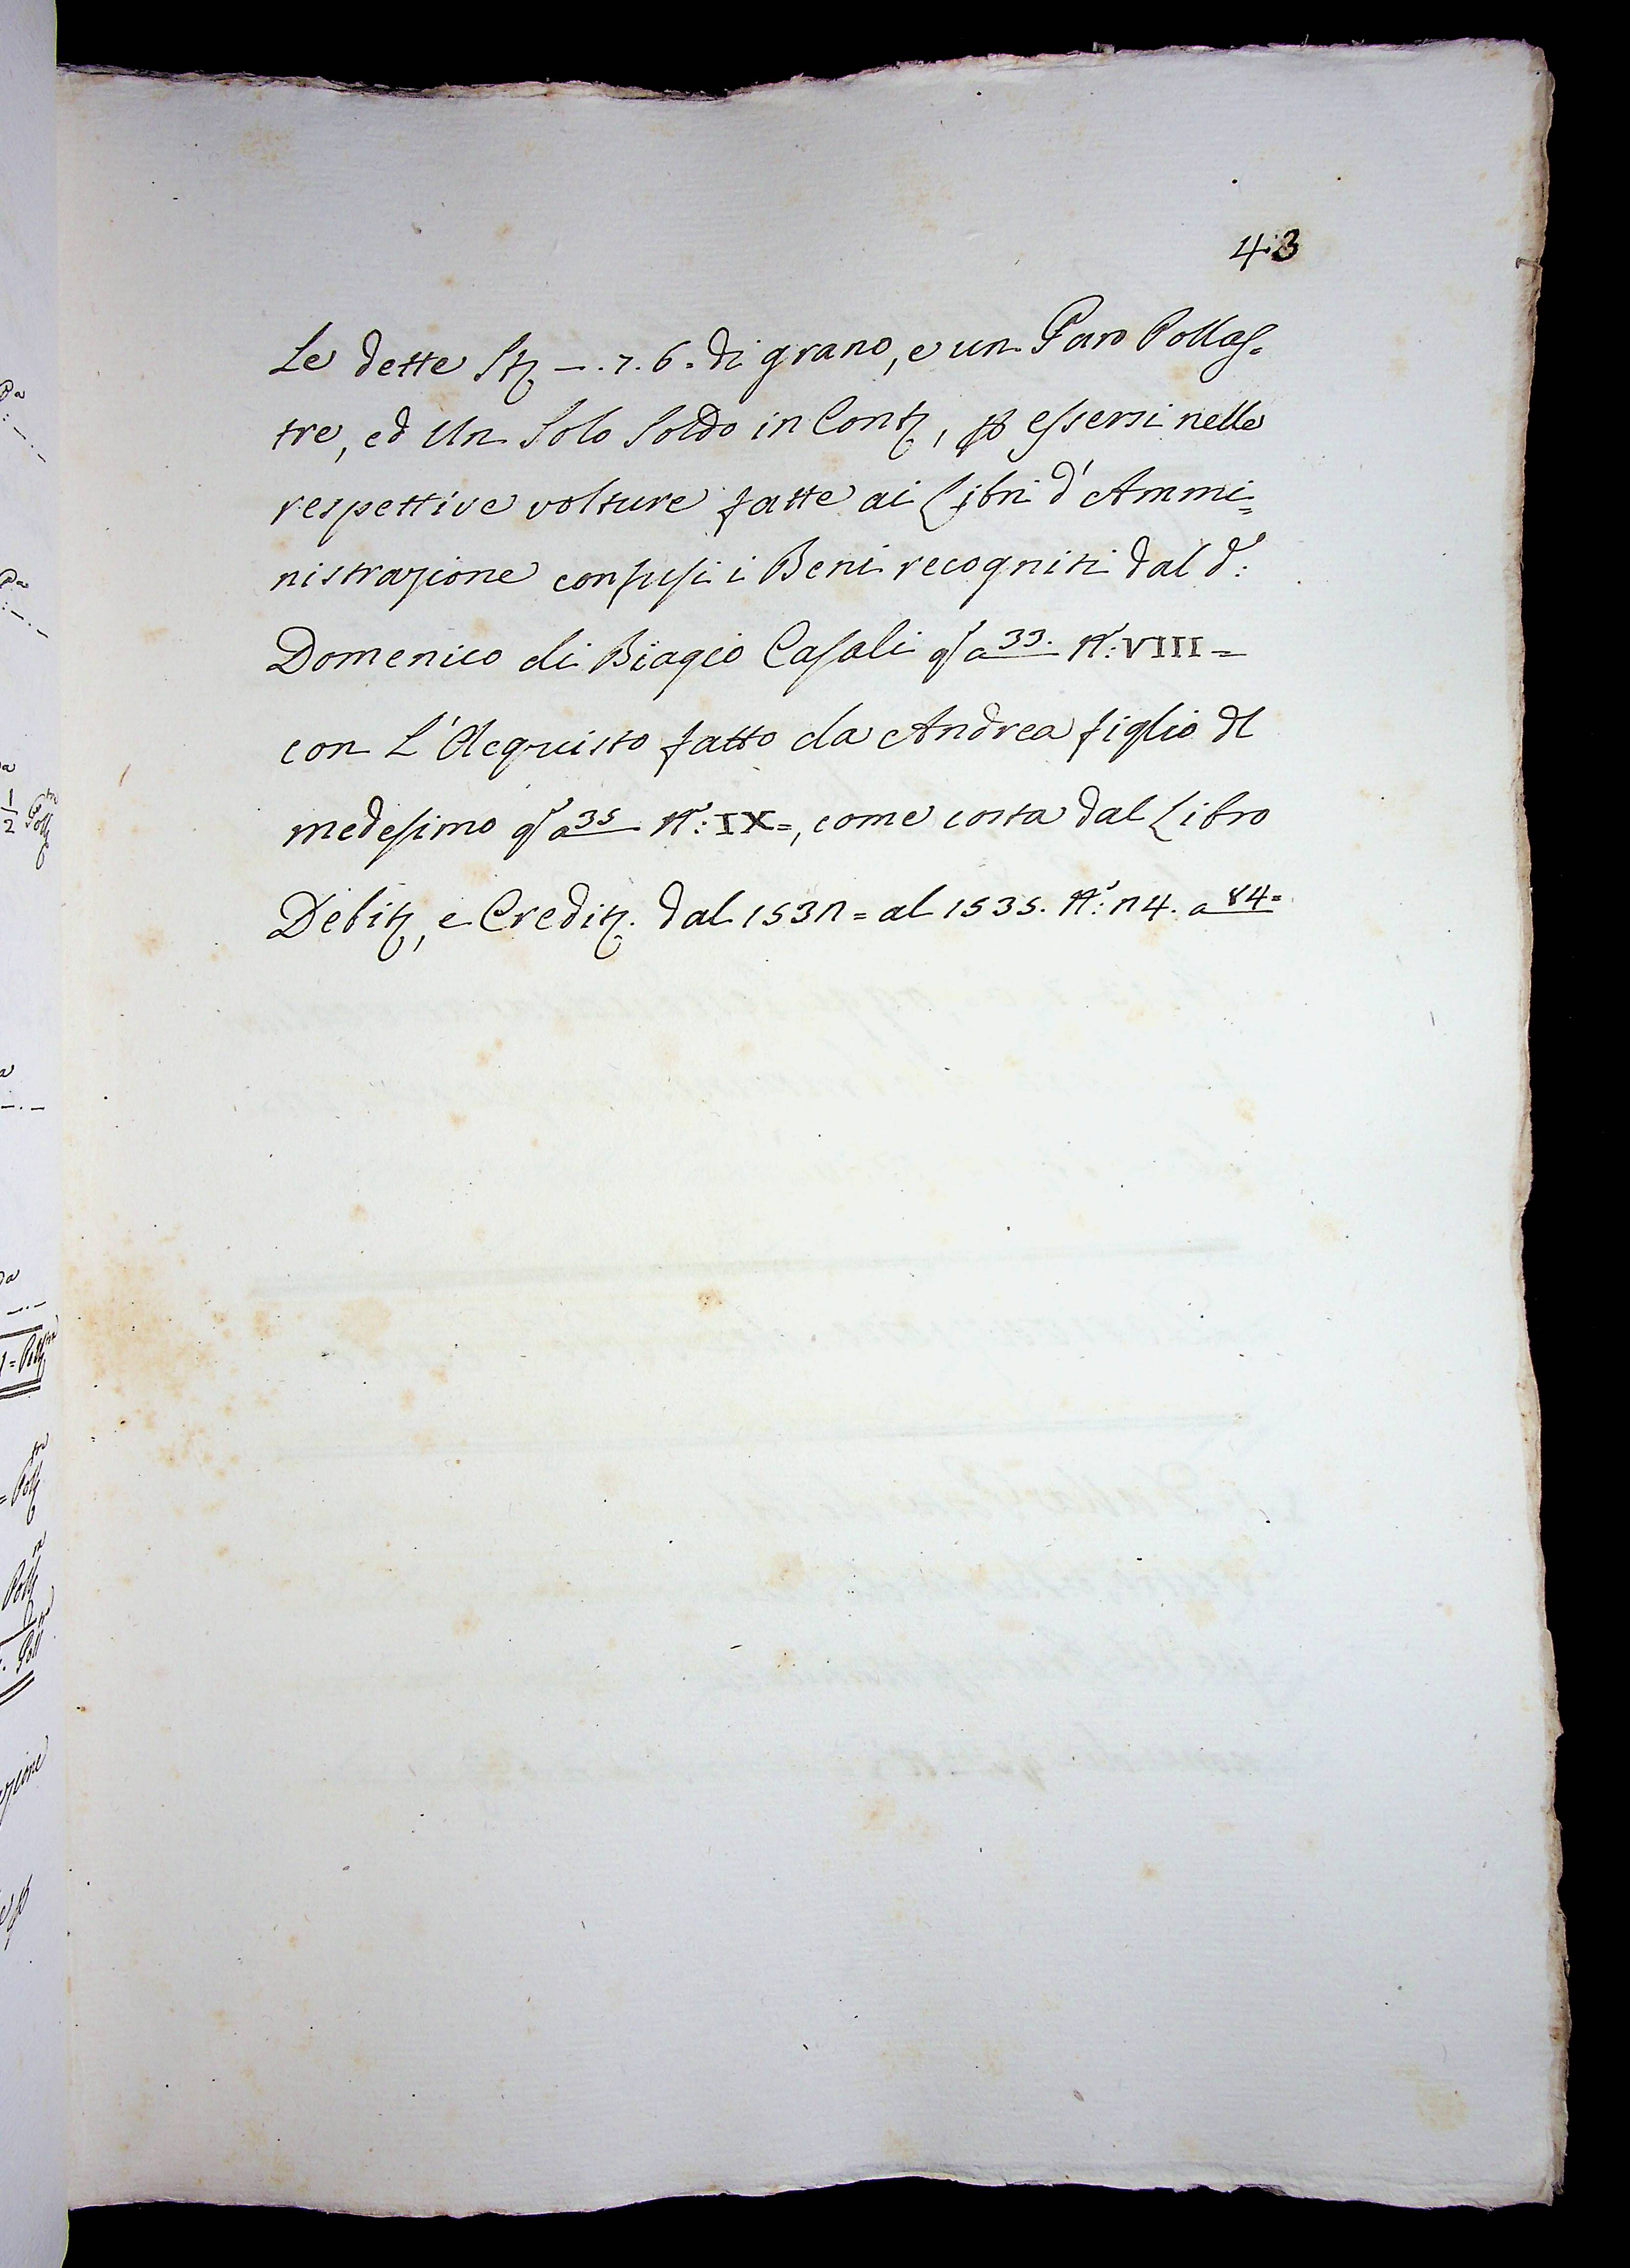 43
Le dette Stz —. 7. 6. di grano, e un Paro Pollas-
tre, ed Un Solo Soldo in Contz, p essersi nelle
respettive volture fatte ai Libri d'Ammi=
nistrazione confusi i Beni recogniti dal d:
Domenico di Biagio Casali qa 33. N: VIII=
con L'Acquisto fatto da Andrea figlio dl
medesimo qa 35 N: IX=, come costa dal Libro
Debitz, e Creditz. dal 1531= al 1535. N: 14. a 84=